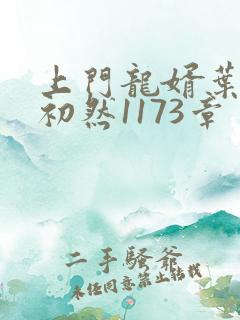 上門龍婿葉
初然1173章
二手騷爺
未经同意禁止转载